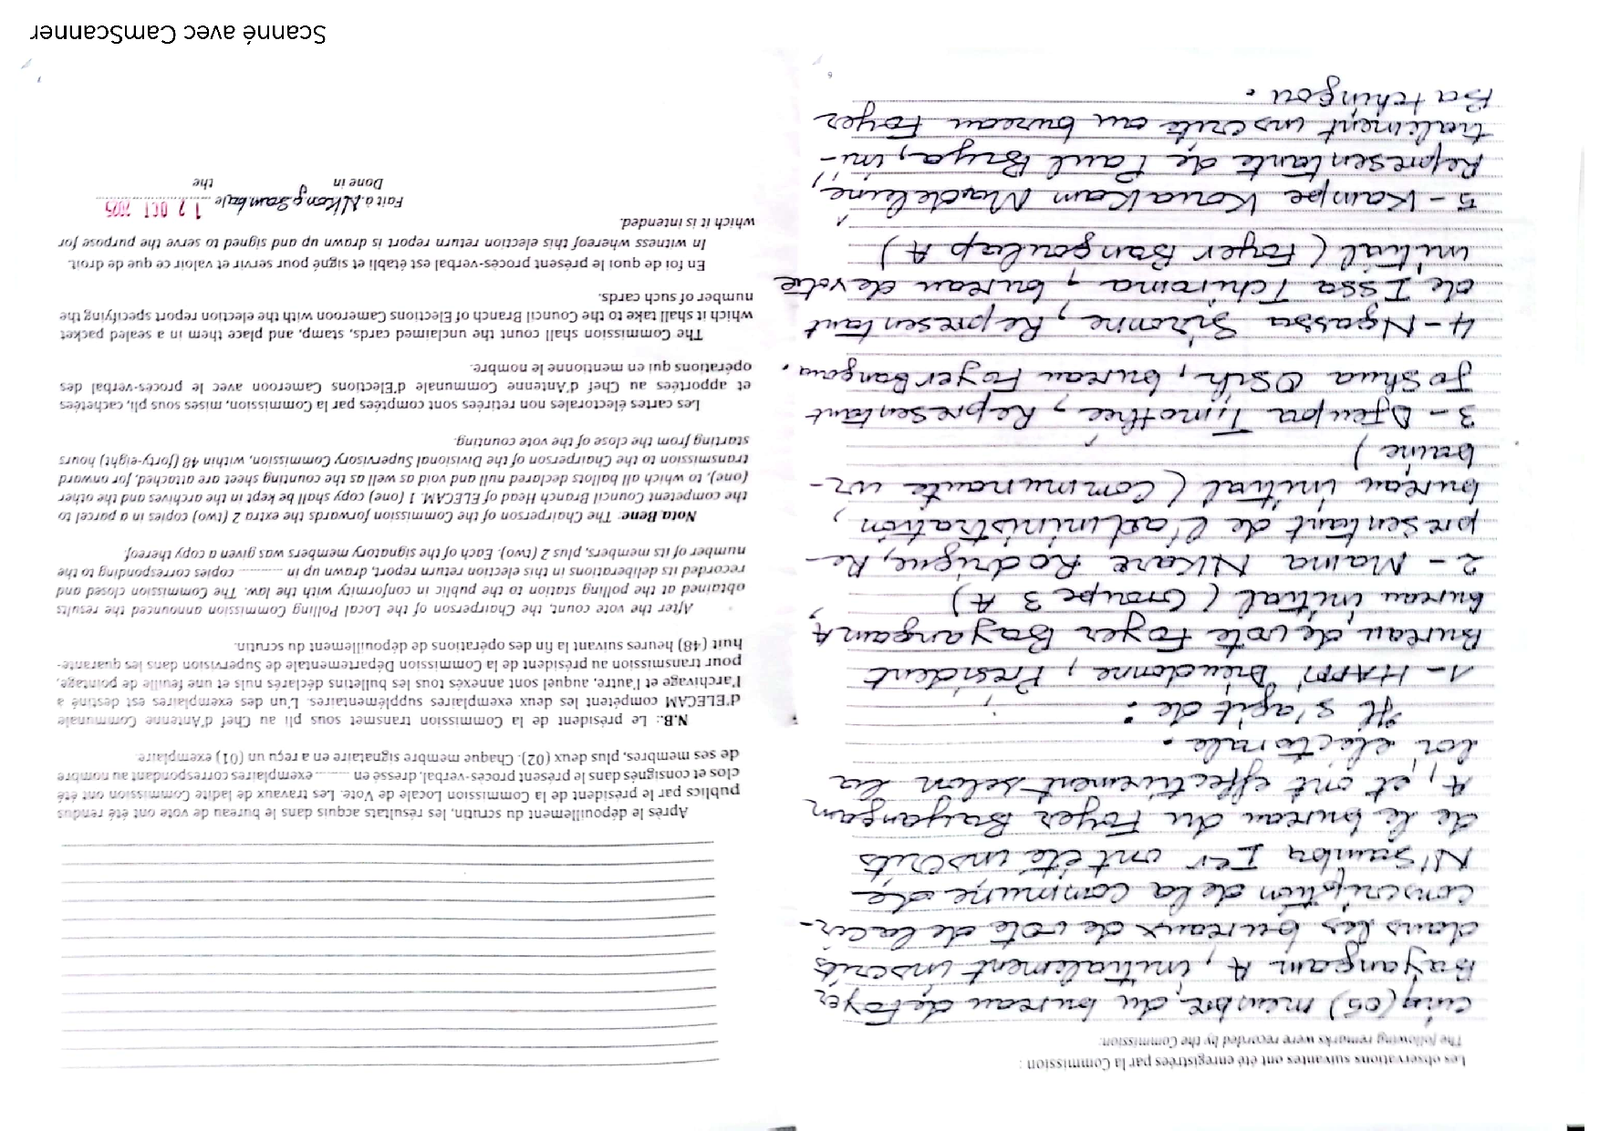 Les observations suivantes ont été enregistrées par la Commission :
The following remarks were recorded by the Commission:
cinq (05) membre du bureau de Foyer
Bayangam A, initialement inscrits
dans les bureaux de vote de la cir-
conscription de la commune de
N'Samba Ier ont été inscrits
de le bureau du Foyer Bayangam
A, et ont effectivement selon la
loi électorale.
Il s'agit de :
1- HAPPI Dieudonné, Président
Bureau de vote Foyer Bayangam A,
bureau initial (Groupe 3 A)
2- Mama NKare Rodrigue, Re-
présentant de l'administration,
bureau initial (Communauté ur-
baine)
3- Djeupa Timothée, Représentant
Joshua Osih, bureau Foyer Bangou.
4- Ngassa Sironne, Représentant
de Issa Tchiroma, bureau de vote
initial (Foyer Bangoulap A)
5- Kampe Kouakam Madeleine,
Représentante de Paul Biya, ini-
tialement inscrite au bureau Foyer
Batchingou.
6
Après le dépouillement du scrutin, les résultats acquis dans le bureau de vote ont été rendus
publics par le président de la Commission Locale de Vote. Les travaux de ladite Commission ont été
clos et consignés dans le présent procès-verbal, dressé en ........ exemplaires correspondant au nombre
de ses membres, plus deux (02). Chaque membre signataire en a reçu un (01) exemplaire.
N.B.: Le président de la Commission transmet sous pli au Chef d'Antenne Communale
d'ELECAM compétent les deux exemplaires supplémentaires. L'un des exemplaires est destiné à
l'archivage et l'autre, auquel sont annexés tous les bulletins déclarés nuls et une feuille de pointage,
pour transmission au président de la Commission Départementale de Supervision dans les quarante-
huit (48) heures suivant la fin des opérations de dépouillement du scrutin.
After the vote count, the Chairperson of the Local Polling Commission announced the results
obtained at the polling station to the public in conformity with the law. The Commission closed and
recorded its deliberations in this election return report, drawn up in ........ copies corresponding to the
number of its members, plus 2 (two). Each of the signatory members was given a copy thereof.
Nota Bene: The Chairperson of the Commission forwards the extra 2 (two) copies in a parcel to
the competent Council Branch Head of ELECAM. 1 (one) copy shall be kept in the archives and the other
(one), to which all ballots declared null and void as well as the counting sheet are attached, for onward
transmission to the Chairperson of the Divisional Supervisory Commission, within 48 (forty-eight) hours
starting from the close of the vote counting.
Les cartes électorales non retirées sont comptées par la Commission, mises sous pli, cachetées
et apportées au Chef d'Antenne Communale d'Elections Cameroon avec le procès-verbal des
opérations qui en mentionne le nombre.
The Commission shall count the unclaimed cards, stamp, and place them in a sealed packet
which it shall take to the Council Branch of Elections Cameroon with the election report specifying the
number of such cards.
En foi de quoi le présent procès-verbal est établi et signé pour servir et valoir ce que de droit.
In witness whereof this election return report is drawn up and signed to serve the purpose for
which it is intended.
Fait à Nkongsamba le 12 OCT 2025
Done in the
7
Scanné avec CamScanner